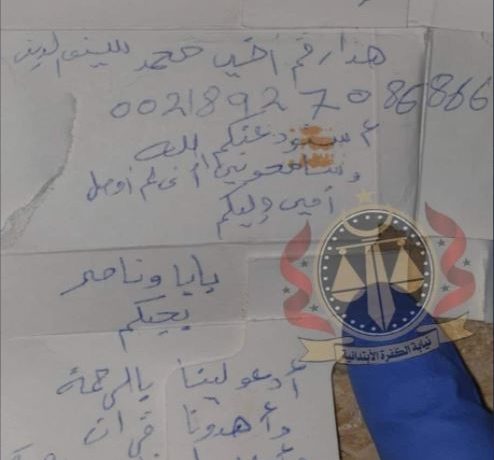 هذا رقم أخي محمد لليبي
00218927086866
أستودعتكم الله
وسامحوني أني لم أوصل
أمي وليكم
بابا وناصر
يحبكم
أدعولينا بالرحمة
وأهدونا قرآن
نيابة الكفرة الابتدائية